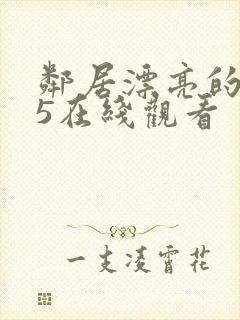 鄰居漂亮的
5在綫觀看
一支凌霄花